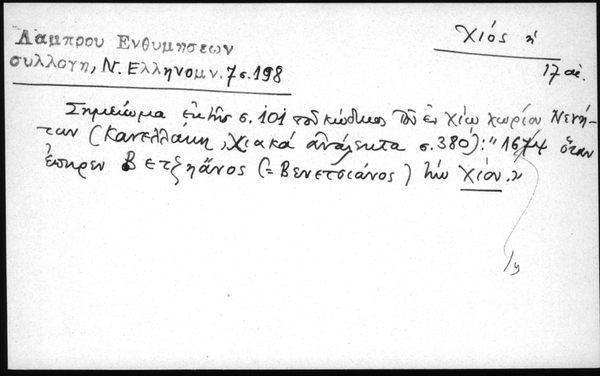 Λαμπρου Ενθυμησεων
συλλογη, Ν. Ελληνομν. 7 σ. 198
Χιός ἡ
17 αἰ.
Σημείωμα ἐκ τῆς σ. 101 τοῦ κώδικος τοῦ ἐν Χίῳ χωρίου Νενή-
των (Κανελλάκη, Χιακά ἀνάλεκτα σ. 380): "1674 ὅταν
ἐπῆρεν Βετζηᾶνος (= Βενετσιάνος) τήν Χίον."
/9